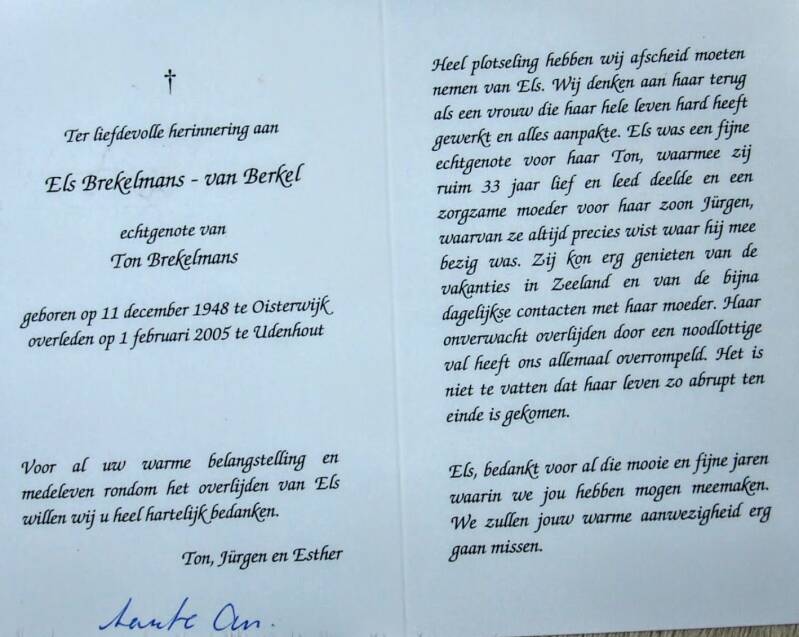 †
Ter liefdevolle herinnering aan
Els Brekelmans - van Berkel
echtgenote van
Ton Brekelmans
geboren op 11 december 1948 te Oisterwijk
overleden op 1 februari 2005 te Udenhout
Voor al uw warme belangstelling en
medeleven rondom het overlijden van Els
willen wij u heel hartelijk bedanken.
Ton, Jürgen en Esther
tante An.
Heel plotseling hebben wij afscheid moeten
nemen van Els. Wij denken aan haar terug
als een vrouw die haar hele leven hard heeft
gewerkt en alles aanpakte. Els was een fijne
echtgenote voor haar Ton, waarmee zij
ruim 33 jaar lief en leed deelde en een
zorgzame moeder voor haar zoon Jürgen,
waarvan ze altijd precies wist waar hij mee
bezig was. Zij kon erg genieten van de
vakanties in Zeeland en van de bijna
dagelijkse contacten met haar moeder. Haar
onverwacht overlijden door een noodlottige
val heeft ons allemaal overrompeld. Het is
niet te vatten dat haar leven zo abrupt ten
einde is gekomen.
Els, bedankt voor al die mooie en fijne jaren
waarin we jou hebben mogen meemaken.
We zullen jouw warme aanwezigheid erg
gaan missen.